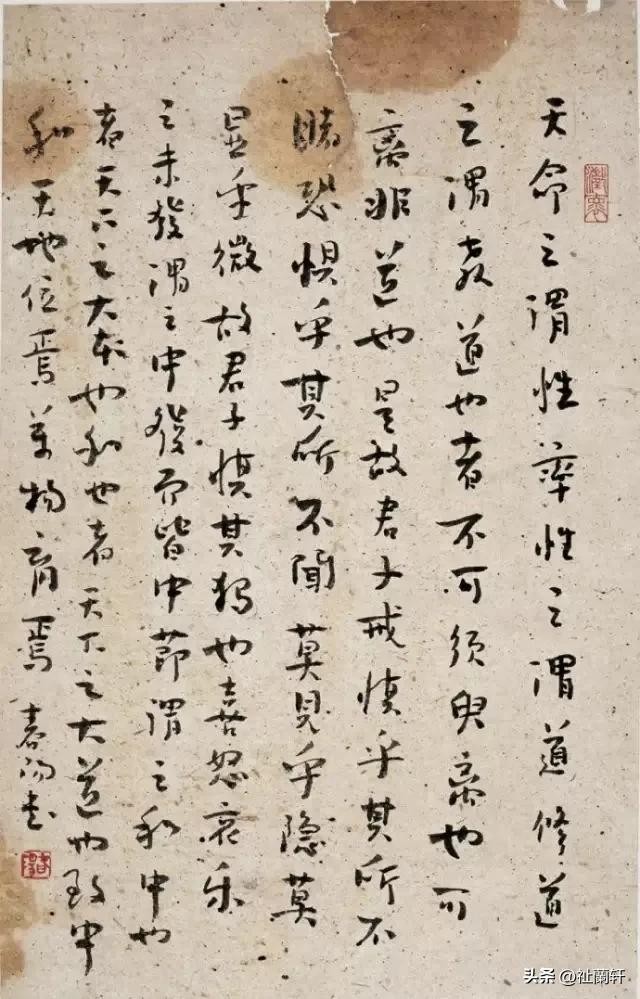 天命之謂性率性之謂道修道
之謂教道也者不可須臾離也可
離非道也是故君子戒慎乎其所不
睹恐懼乎其所不聞莫見乎隱莫
显乎微故君子慎其獨也喜怒哀乐
之未發謂之中發而皆中節謂之和中也
者天下之大本也和也者天下之大道也致中
和天地位焉萬物育焉
头条 @祉蘭轩